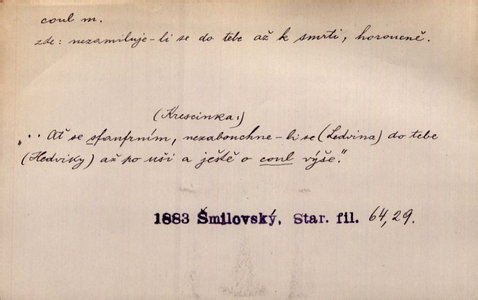 coul m.
zde: nezamiluje-li se do tebe až k smrti, horoucně.
(Krescinka:)
"·· Ať se sfanfrním, nezabouchne-li se (Ledvina) do tebe
(Hedviky) až po uši a ještě o coul výše."
1883 Šmilovský, Star. fil. 64,29.